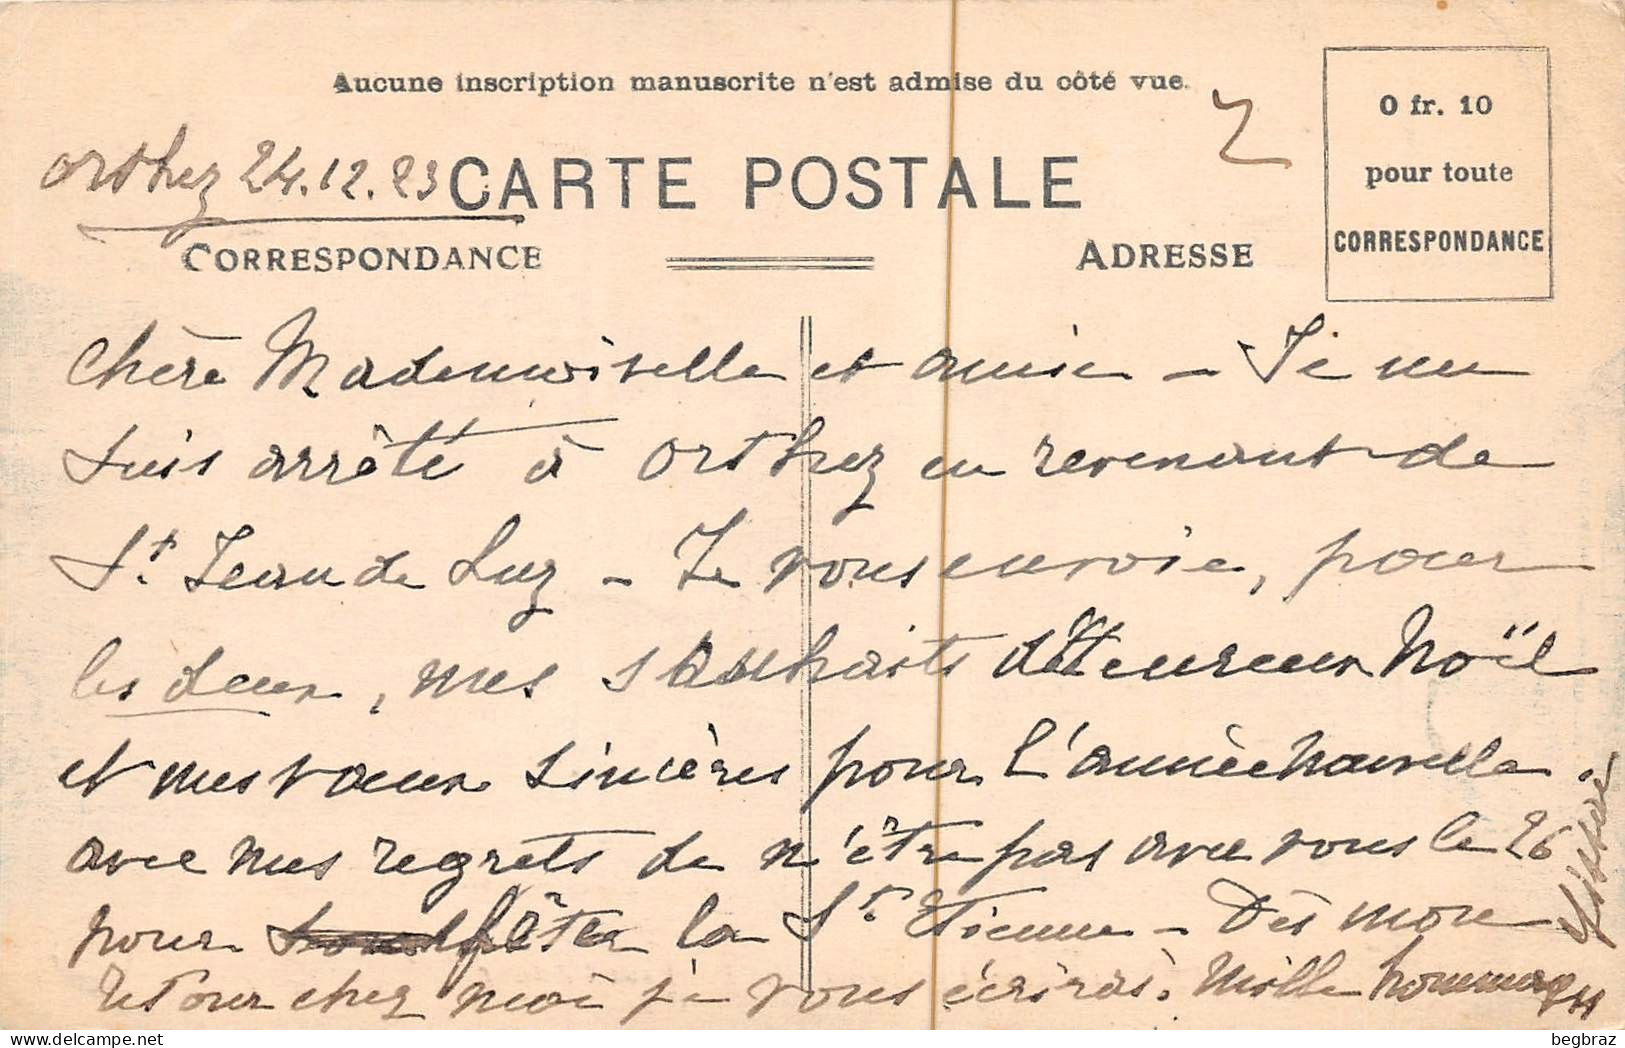 Aucune inscription manuscrite n'est admise du côté vue.
Orthez 24.12.23
CARTE POSTALE
CORRESPONDANCE
ADRESSE
0 fr. 10
pour toute
CORRESPONDANCE
Chère Mademoiselle et amie - Je me
suis arrêté à Orthez en revenant de
St. Jean de Luz - Je vous envoie, pour
les deux, mes souhaits d'Heureux Noël
et mes vœux sincères pour l'année nouvelle.
avec mes regrets de n'être pas avec vous le 26
pour fêter la St. Etienne - Dès mon
retour chez moi je vous écrirai. Mille hommages
begbraz